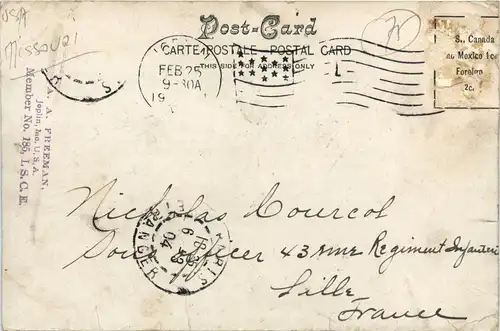 USA
Missouri
Post-Card
CARTE POSTALE POSTAL CARD
THIS SIDE FOR ADDRESS ONLY
FEB 25
9-30A
19
S., Canada
Mexico 1c
Foreign
2c.
A. A. FREEMAN,
Joplin, Mo. U.S.A.
Member No. 185, I. S. C. E.
Nicholas Courcol
Sous officer 43 ème Regiment Infanterie
Lille
France
PARIS
ETRANGER
6
04